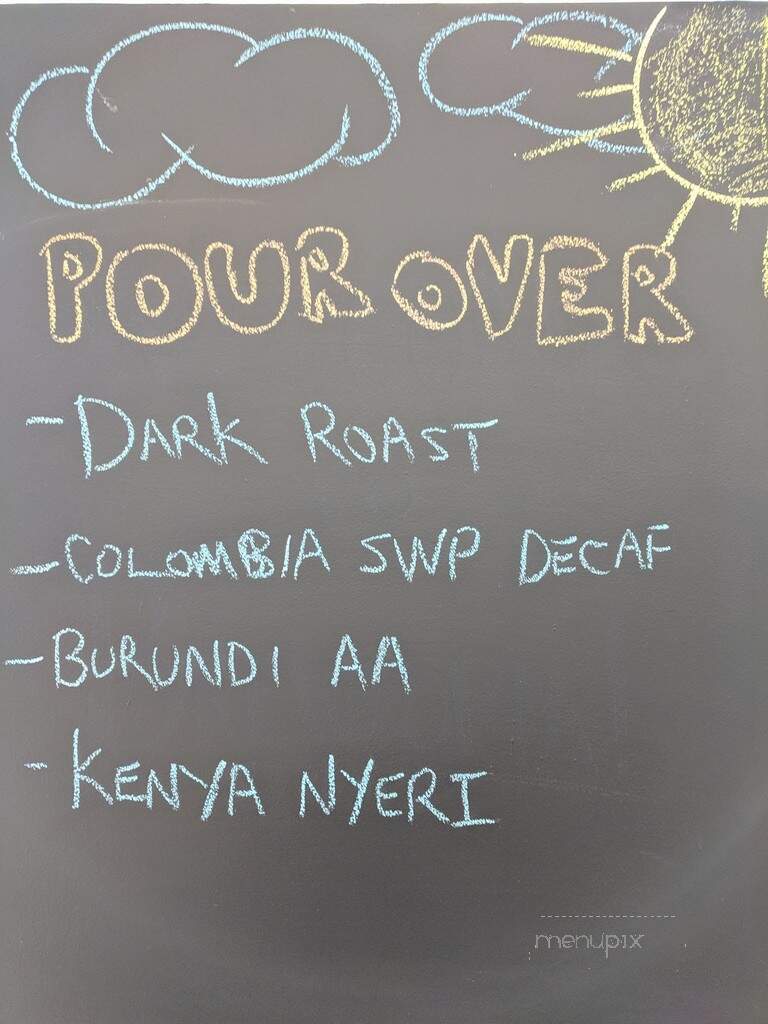 POUR OVER
- DARK ROAST
- COLOMBIA SWP DECAF
- BURUNDI AA
- KENYA NYERI
menupix